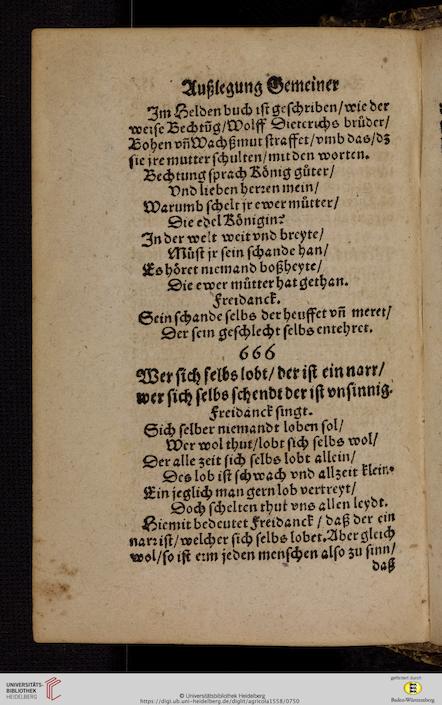 Außlegung Gemeiner
Im Helden buch ist geschriben/wie der
weise Bechtūg/Wolff Dieterichs brüder/
Bohen vñ Wachßmut straffet/vmb das/dz
sie jre mutter schulten/mit den worten.
Bechtung sprach König güter/
Vnd lieben herren mein/
Warumb schelt jr ewer mütter/
Die edel Königin?
In der welt weit vnd breyte/
Müst jr sein schande han/
Es höret niemand boßheyte/
Die ewer mütter hat gethan.
Freidanck.
Sein schande selbs der heuffet vñ meret/
Der sein geschlecht selbs entehret.
666
Wer sich selbs lobt/der ist ein narr/
wer sich selbs schendt der ist vnsinnig.
Freidanck singt.
Sich selber niemandt loben sol/
Wer wol thut/lobt sich selbs wol/
Der alle zeit sich selbs lobt allein/
Des lob ist schwach vnd allzeit klein.
Ein jeglich man gern lob vertreyt/
Doch schelten thut vns allen leydt.
Hiemit bedeutet Freidanck/daß der ein
narr ist/welcher sich selbs lobet. Aber gleich
wol/so ist eim jeden menschen also zu sinn/
daß
UNIVERSITÄTS-
BIBLIOTHEK
HEIDELBERG
© Universitätsbibliothek Heidelberg
https://digi.ub.uni-heidelberg.de/diglit/agricola1558/0750
gefördert durch
Baden-Württemberg